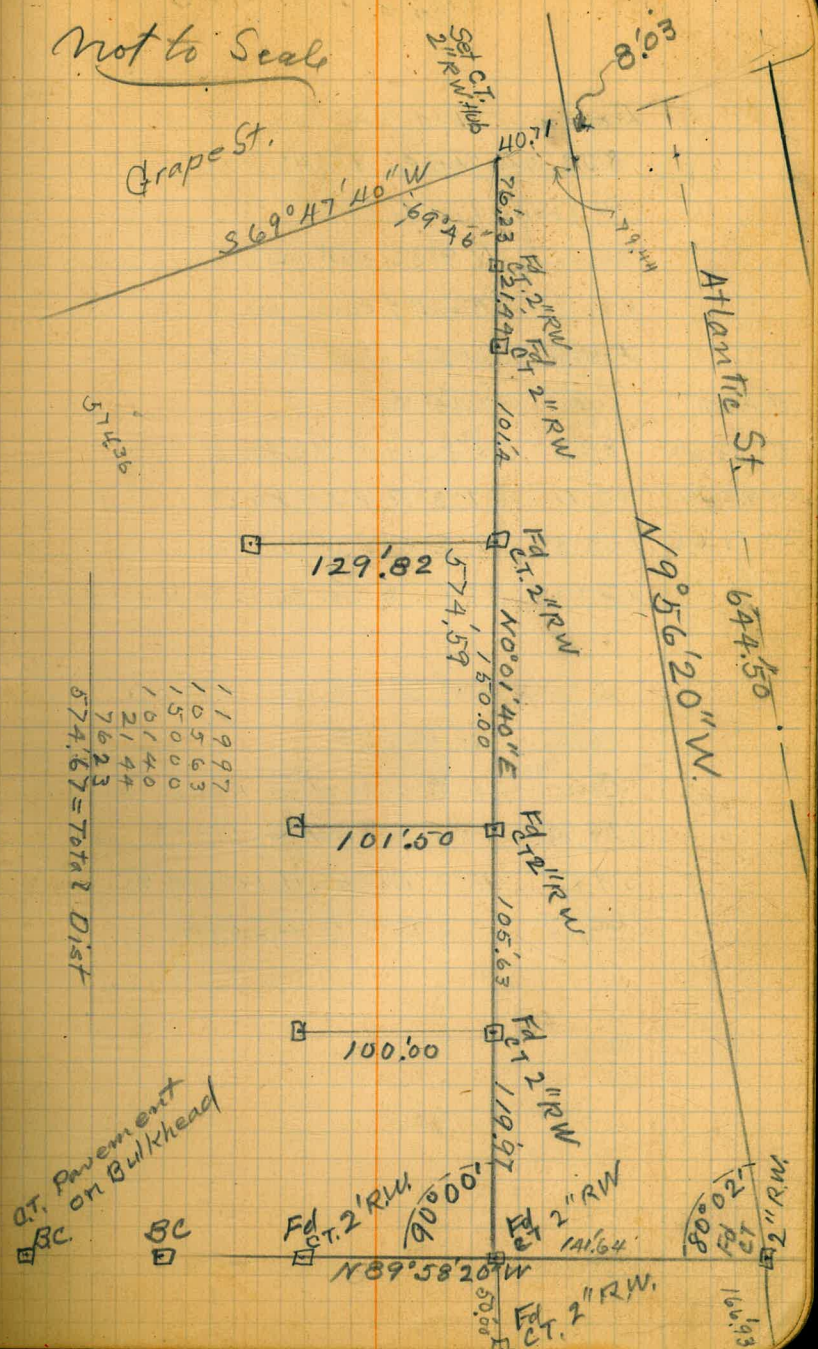 Not to Scale
Set C.T.
2" R.W. Hub
8'.03
Grape St.
40.71
S 69° 47' 40" W
69° 46'
76'.23
79.44
Fd
C.T. 2" RW
21.44
Fd
C.T. 2" RW
Atlantic St.
644'.50
574.36
101.4
129'.82
Fd
C.T. 2" RW
574.59
N 0° 01' 40" E
150.00
N 9° 56' 20" W.
11997
10563
15000
10140
2144
7623
574.67 = Total Dist
101'.50
Fd
CT 2" RW
105'.63
100'.00
Fd
CT 2" RW
119.97
C.T. Pavement
on Bulkhead
BC
BC
Fd
CT. 2' R.W.
90° 00'
Fd
CT 2" RW
141.64'
80° 02'
Fd
CT
2" R.W.
N 89° 58' 20" W
50.00
Fd
CT. 2" R.W.
166'.93